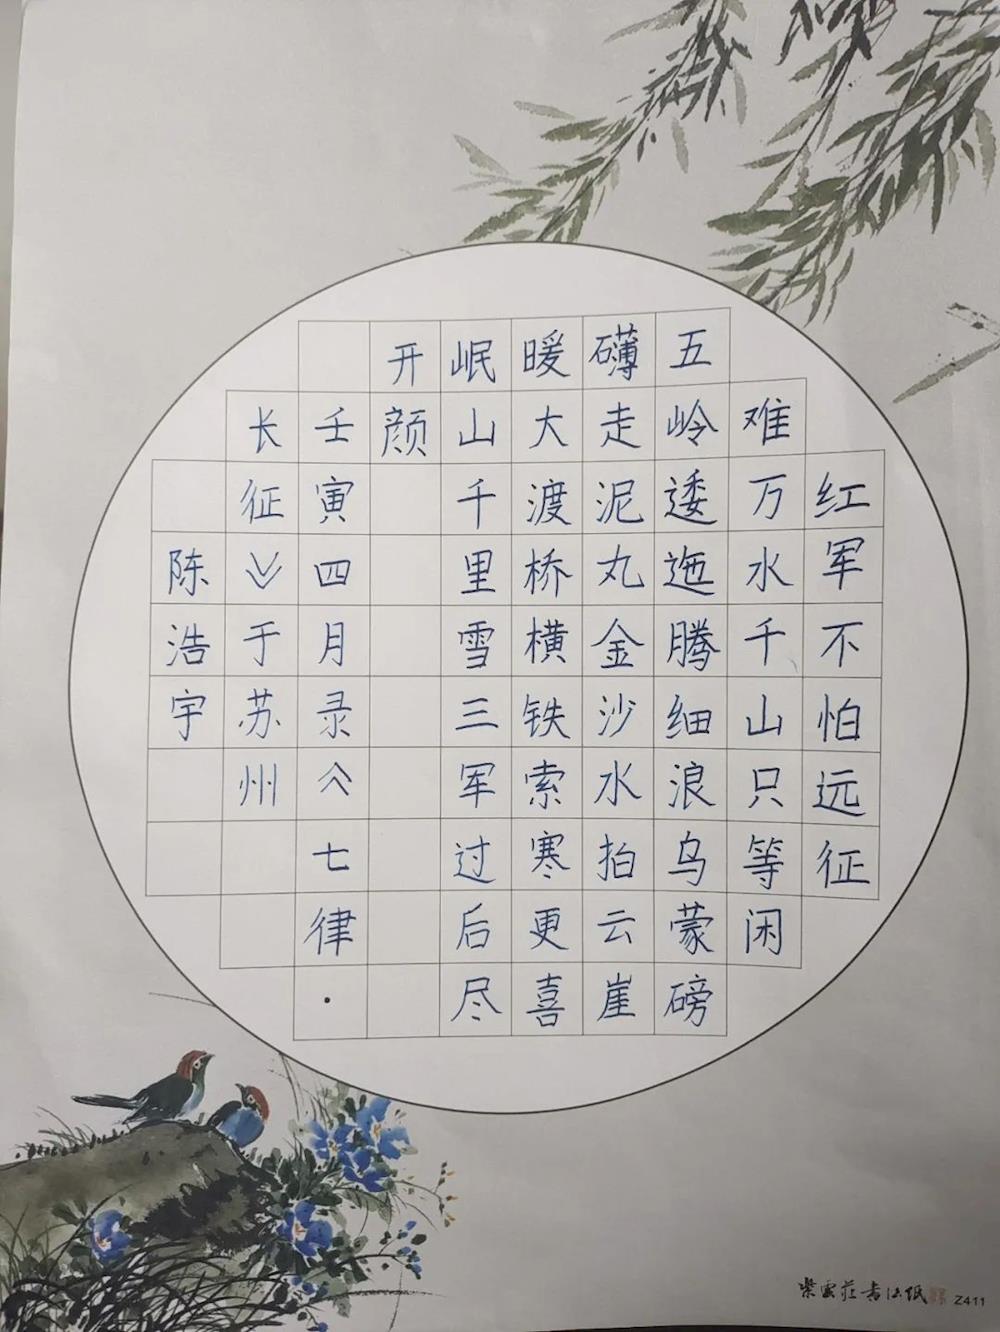 红军不怕远征
难万水千山只等闲
五岭逶迤腾细浪乌蒙磅
礴走泥丸金沙水拍云崖
暖大渡桥横铁索寒更喜
岷山千里雪三军过后尽
开颜
壬寅四月录︽七律·
长征︾于苏州
陈浩宇
紫云庄书法纸 Z411